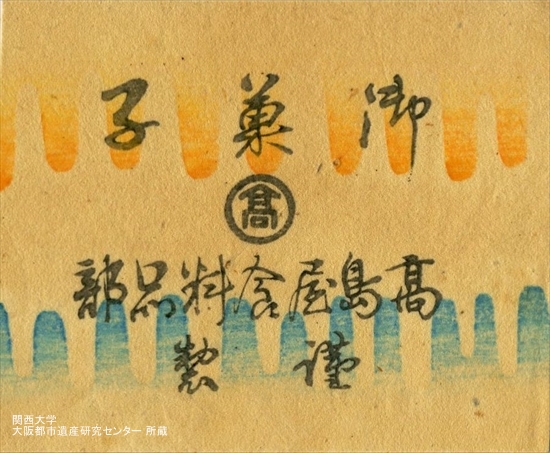 御菓子
髙
髙島屋食料品部
謹製
関西大学
大阪都市遺産研究センター 所蔵